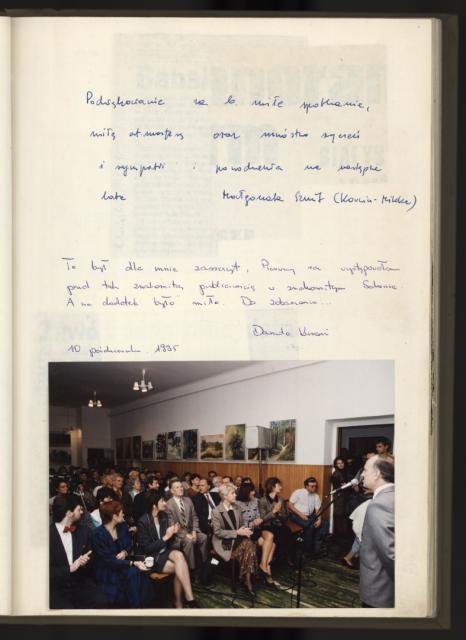 Podziękowanie za b. miłe spotkanie,
miłą atmosferę oraz mnóstwo życzeń
i sympatii i powodzenia na następne
lata Małgorzata (Kownia-Mikke)
To był dla mnie zaszczyt. Pierwszy raz występowałam
przed tak znakomitą publicznością w znakomitym Salonie.
A na dodatek było miło. Do zobaczenia...
Danuta
10 października 1995